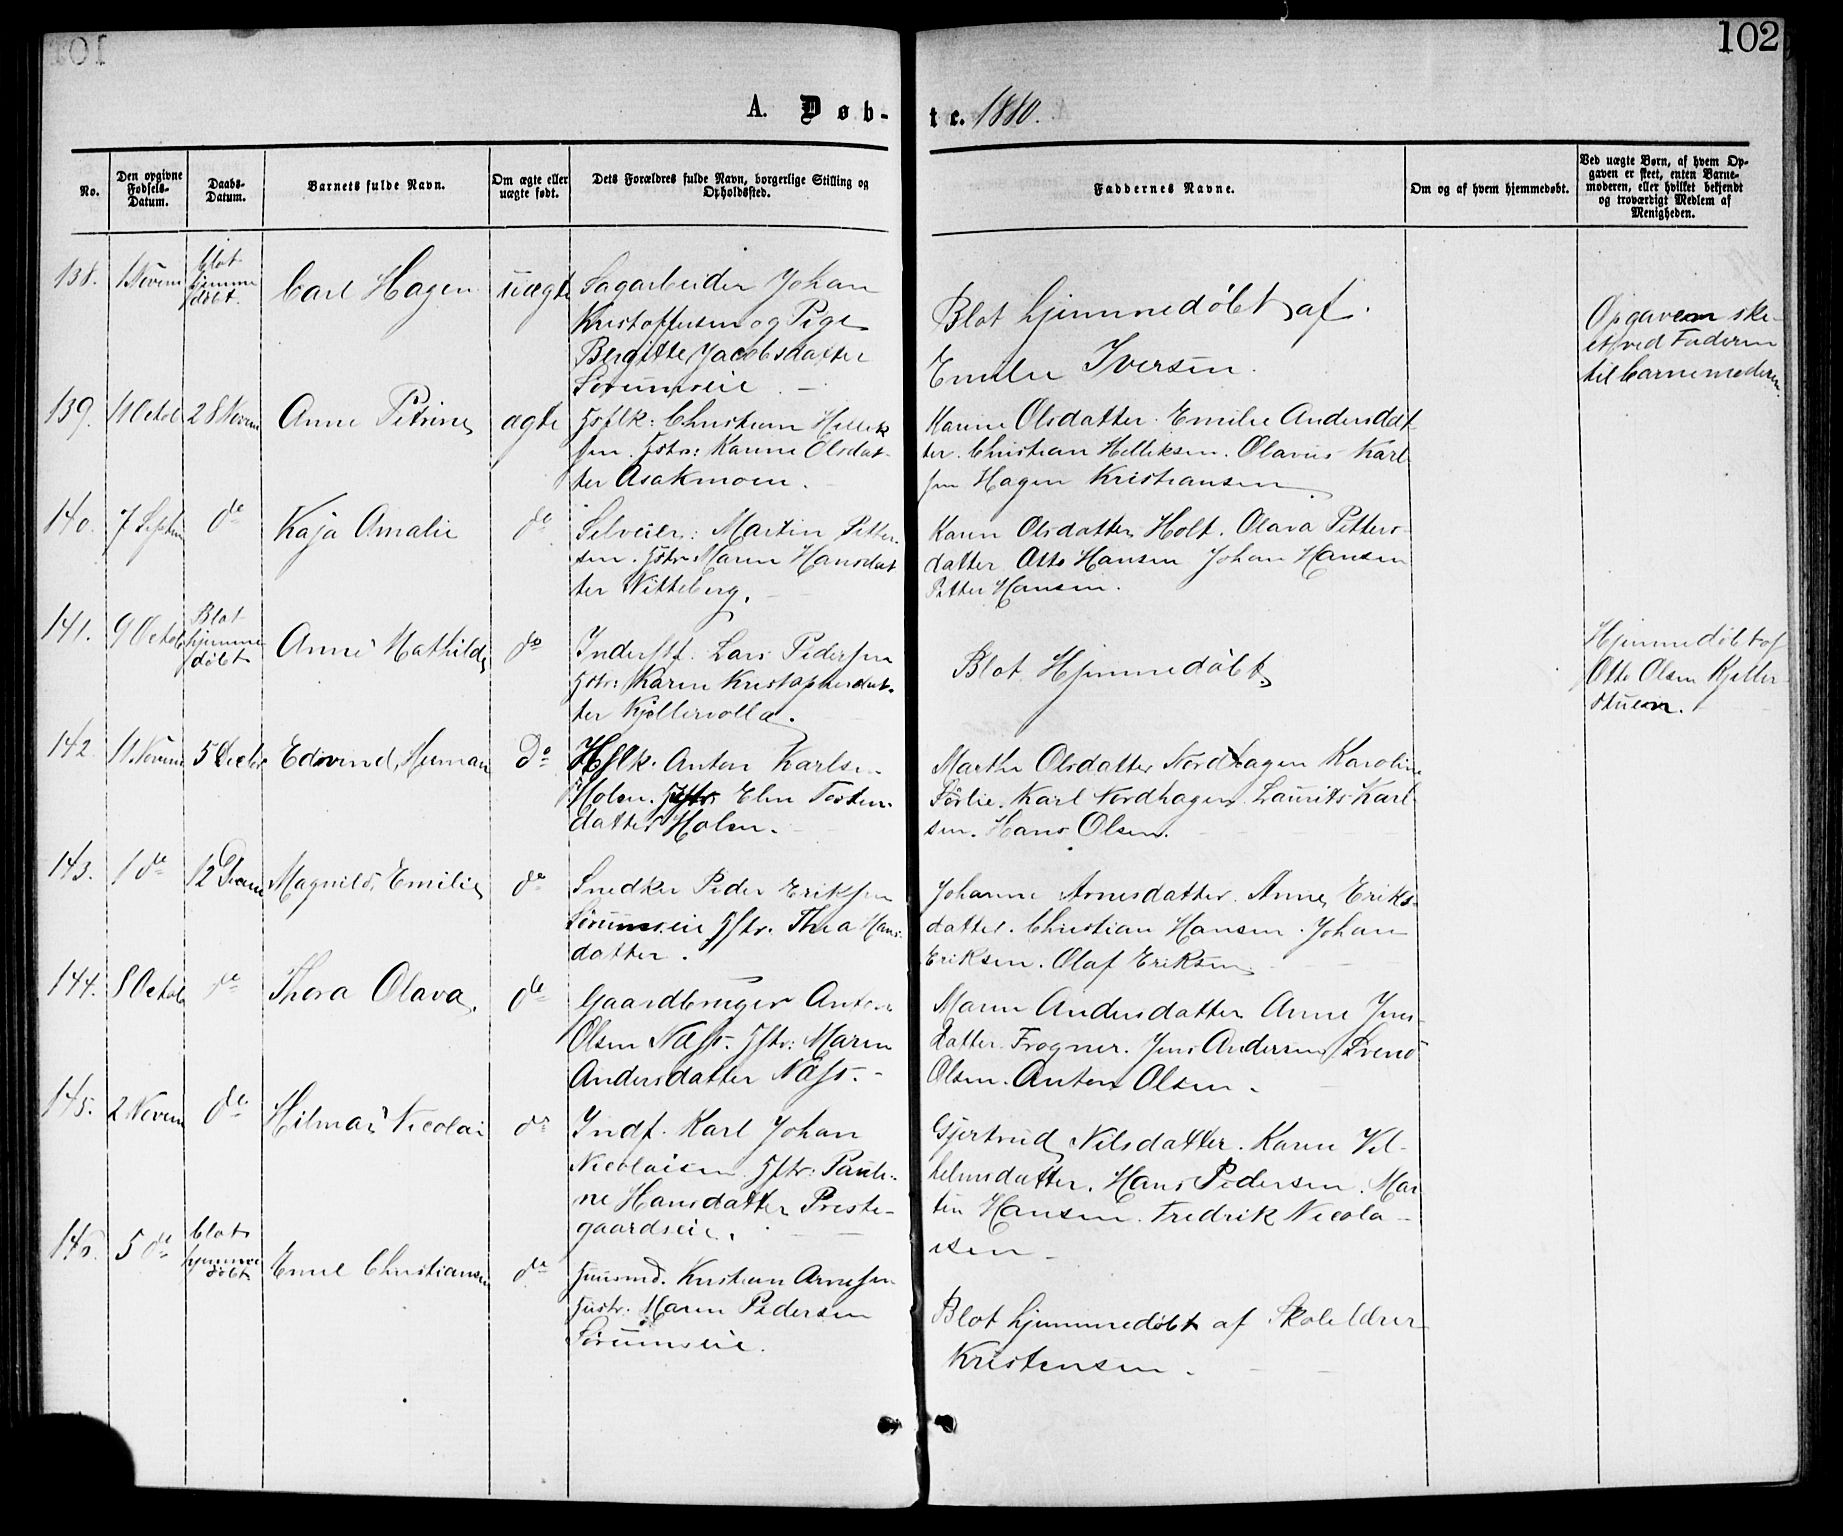 101
102
A. Døb-
te. 1880.
No.
Den opgivne Fødsels-Datum.
Daabs-Datum.
Barnets fulde Navn.
Om ægte eller uægte født.
Dets Forældres fulde Navn, borgerlige Stilling og Opholdssted.
Faddernes Navne.
Om og af hvem hjemmedøbt.
Ved uægte Børn, af hvem Opgaven er skeet, enten Barnemoderen, eller hvilket bekjendt og troværdigt Medlem af Menigheden.
138. 1 Novem blot hjemme døbt. Carl Hagen uægte Sagarbeider Johan
Kristoffersen og Pige
Bergitte Jacobsdatter
Sørumseie
Blot hjemmedøbt af
Emilie Iversen.
Opgaven ske-
et ved Faderen
til barnemoderen
139. 11 Octob 28 Novem Anne Petrine ægte Gsflk: Christian Hellik
sen. Hstr: Karine Olsdat-
ter Asakmoen.
Karine Olsdatter. Emilie Andersdat
ter. Christian Helliksen. Olavus Karl
sen Hagen Kristiansen
140. 7 Septem do Kaja Amalie do Selveier: Martin Petter-
sen. Hstr. Maren Hansdat
ter Vitteberg.
Karen Olsdatter Holt. Olava Petters-
datter Otto Hansen Johan Hansen
Petter Hansen.
141. 9 Octob Blot hjemme døbt Anne Mathilde do Inderst. Lars Pedersen
Hstr: Karen Kristophersdat-
ter Kjøllervolla.
Blot Hjemmedøbt.
Hjemmedøbt af
Otto Olsen Kjeller
stuen.
142. 11 Novem 5 Decbr Edvind, Herman do Hsflk. Anton Karlsen
Holen. Hstr: Elen Torsten-
datter Holen.
Marthe Olsdatter Nordhagen Karoline
Sørlie. Karl Nordhagen. Laurits Karl-
sen. Hans Olsen.
143. 1 do 12 Decem Magnild, Emilie do Snedker Peder Eriksen
Sørumseie Hstr. Thea Hans-
datter.
Johanne Arnesdatter. Anne Eriks-
datter. Christian Hansen. Johan
Eriksen. Olaf Eriksen
144. 8 Octob do Thora Olava. do Gaardbruger Anton
Olsen Næss. Hstr: Maren
Andersdatter Næss.
Maren Andersdatter Anne Jens-
datter Frogner. Jens Andersen Svend
Olsen. Anton Olsen.
145. 2 Novem do Hilmar Nicolai do Indf. Karl Johan
Nicolaisen. Hstr: Pauli-
ne Hansdatter Preste-
gaardseie.
Gjertrud Nilsdatter. Karen Vil-
helmsdatter. Hans Pedersen. Mar
tin Hansen. Fredrik Nicola-
isen
146. 5 do blot hjemme døbt Emil Christiansen do Husmd. Kristian Arnesen
Hustr. Maren Pedersen
Sørumseie.
Blot hjemmedøbt af Skolelærer
Kristensen.